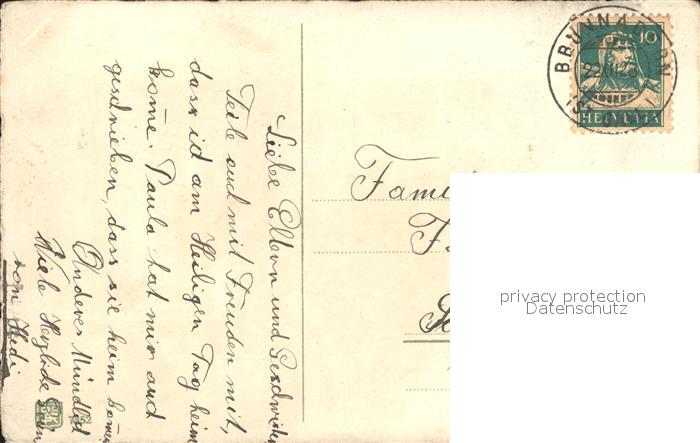 Liebe Eltern und Geschwister
Teile euch mit Freuden mit,
dass ich am Heiligen Tag heim
kome. Paula hat mir auch
geschrieben, dass sie heim kome
Anderes Mündlich
Viele Herzliche
von Hedi
Fami
10
BRUNNADERN
HELVETIA
privacy protection
Datenschutz